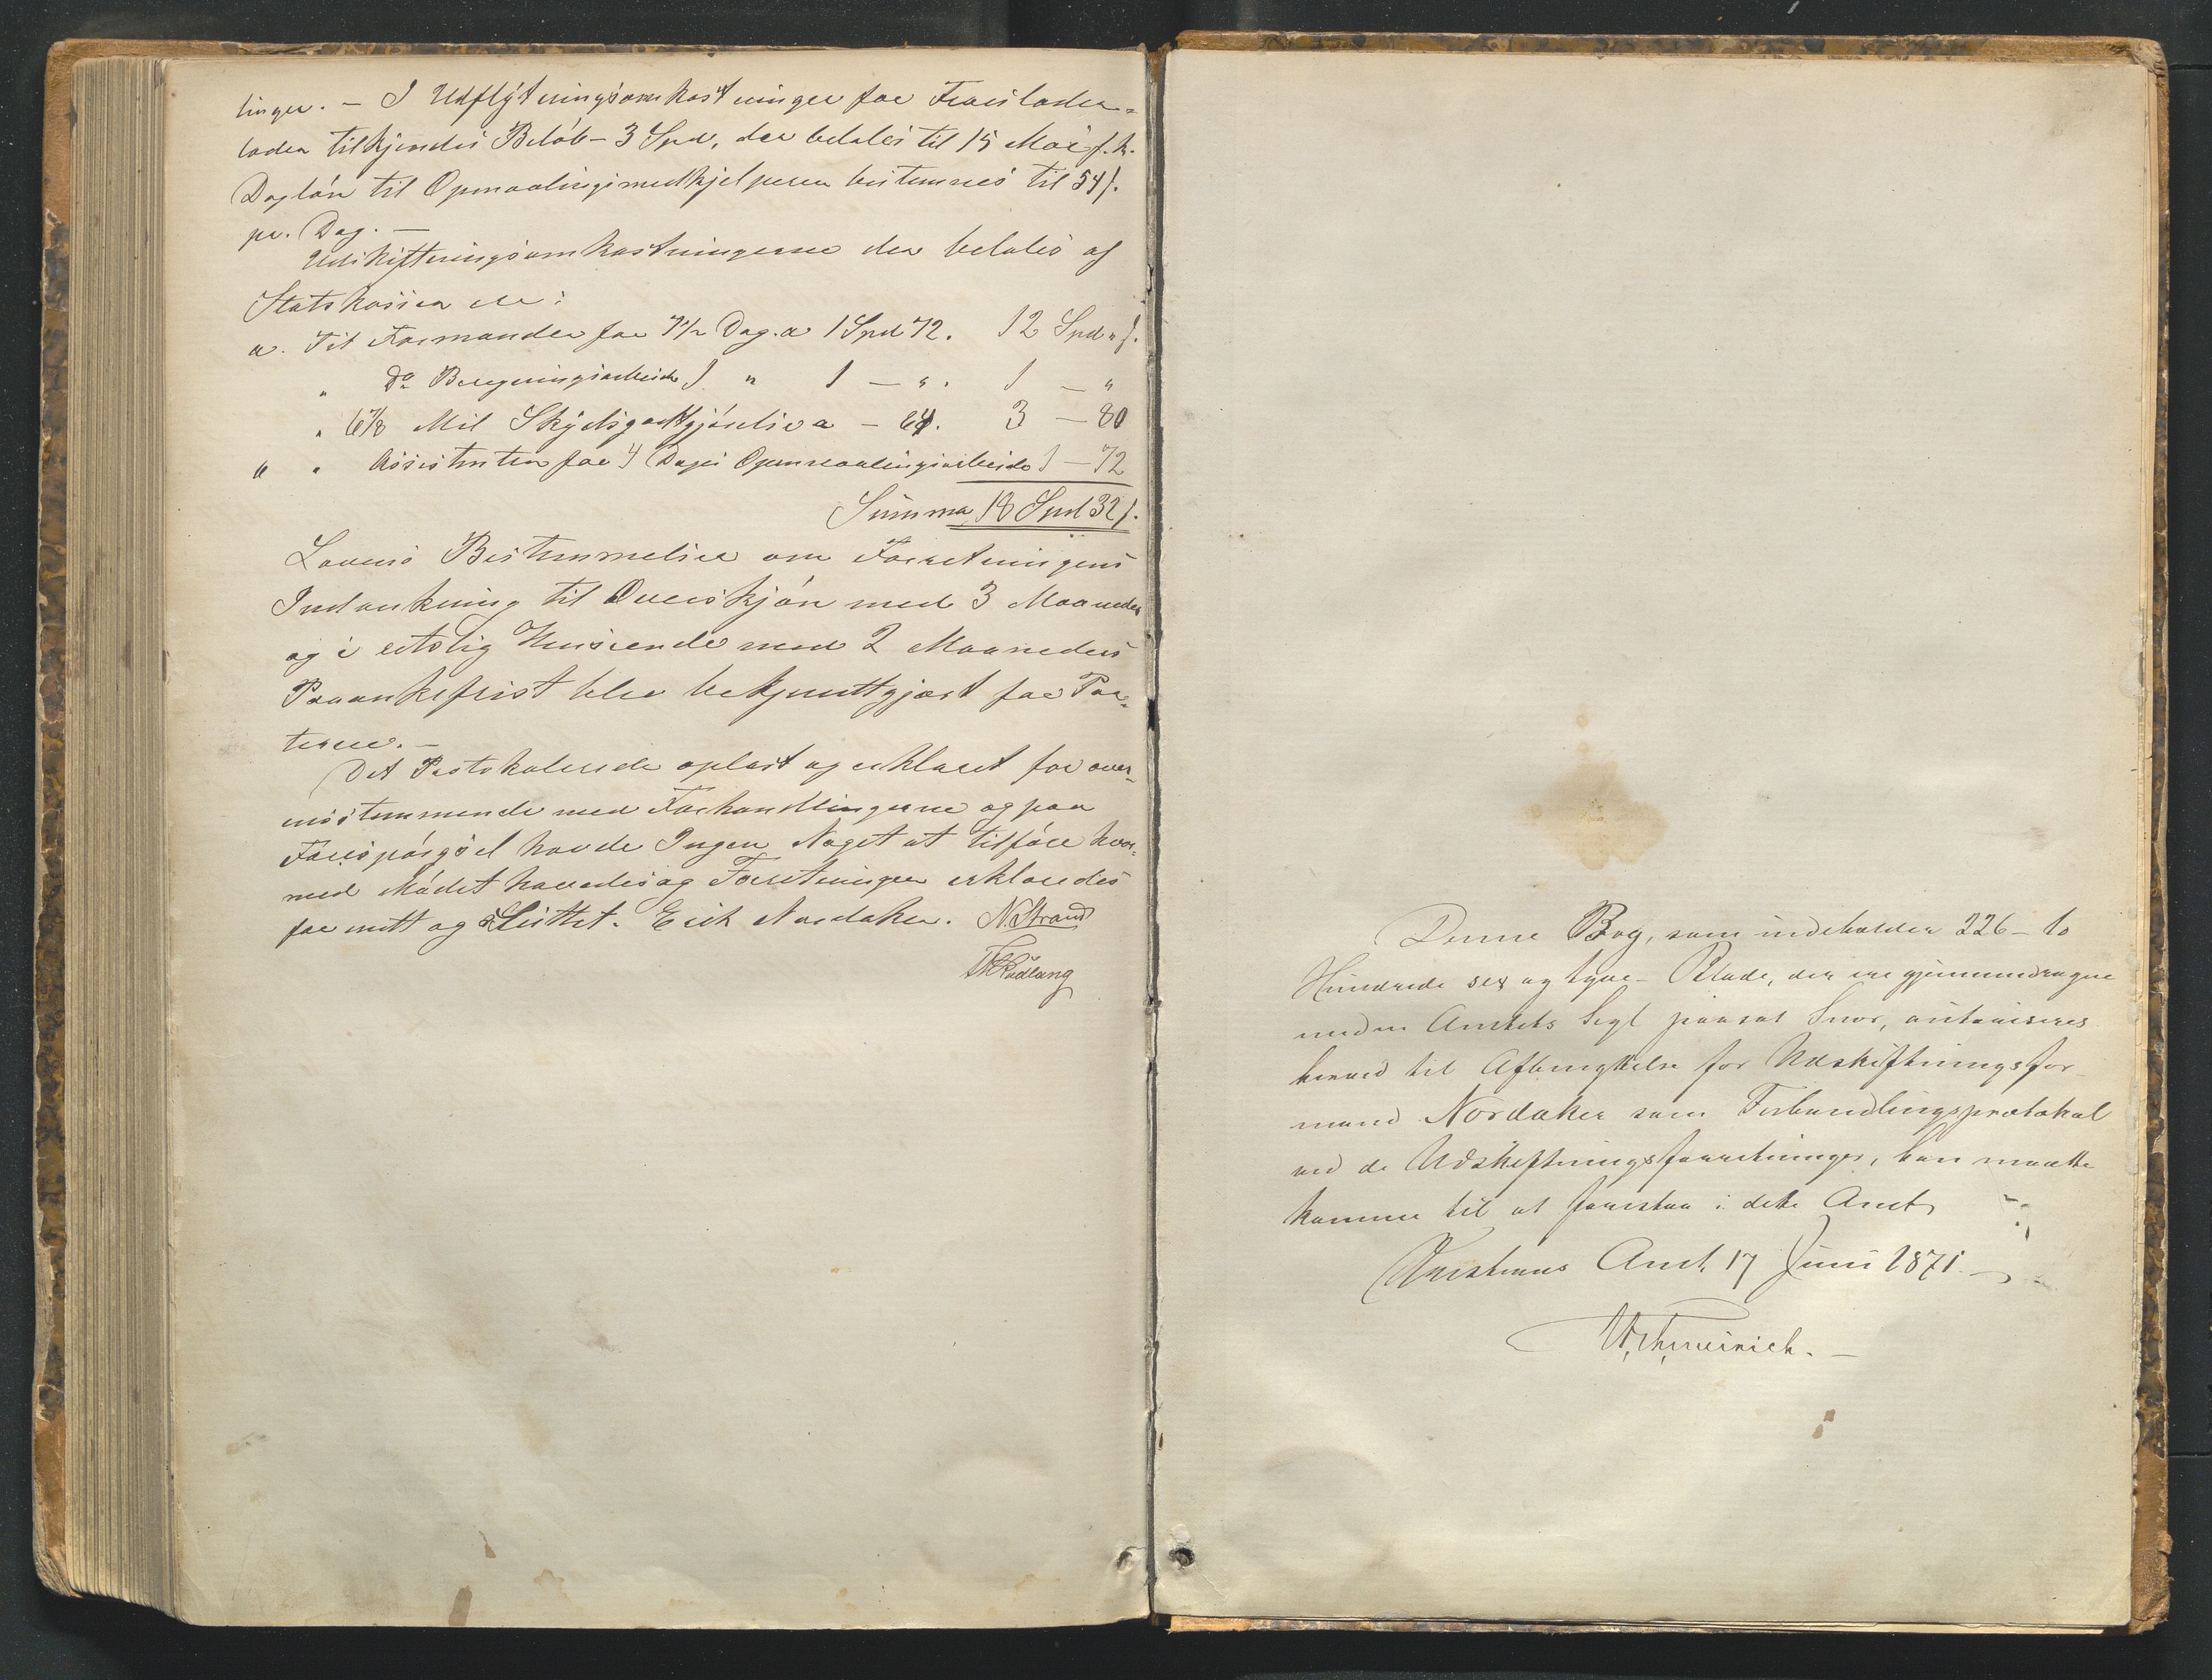 linger. – I Udflytningsomkostninger for
laden tilkjendes Beløb – 3 Spd, der betales til 15 Mai f. k.
Dagløn til Opmaalingsmedhjelperen bestemmes til 54 s.
pr. Dag. –
Udskiftningsomkostningerne der betales af
Statskassen ere:
a. Til Formanden for 7½ Dag. a 1 Spd 72. 12 Spd " s.
" Do Beregningsarbeide 1 " 1 – " . 1 – "
" 6⅞ Mil Skydsgodtgjørelse a – 64. 3 – 80
" " Assistenten for 4 Dages Opmaalingsarbeide 1 – 72
Summa 18 Spd 32 s.
Lovens Bestemmelser om Forretningens
Indankning til Overskjøn med 3 Maaneder
og i retslig Henseende med 2 Maaneders
Paaankefrist blev bekjendtgjort for Par-
terne. –
Det Protokollerede oplæst og erklæret for over-
ensstemmende med Forhandlingerne og paa
Forespørgsel havde Ingen Noget at tilføre hvor-
med Mødet hævedes og Forretningen erklæredes
for endt og Sluttet. Erik Nordaker. N. Strand
Denne Bog, som indeholder 226 – to
Hundrede sex og tyve – Blade, der ere gjennemdragne
med en Amtets Segl paasat Snor, autoriseres
herved til Afbenyttelse for Udskiftningsfor-
mand Nordaker som Forhandlingsprotokol
ved de Udskiftningsforretninger, han maatte
komme til at forestaa i dette Amt
Christians Amt 17 Juni 1871. –